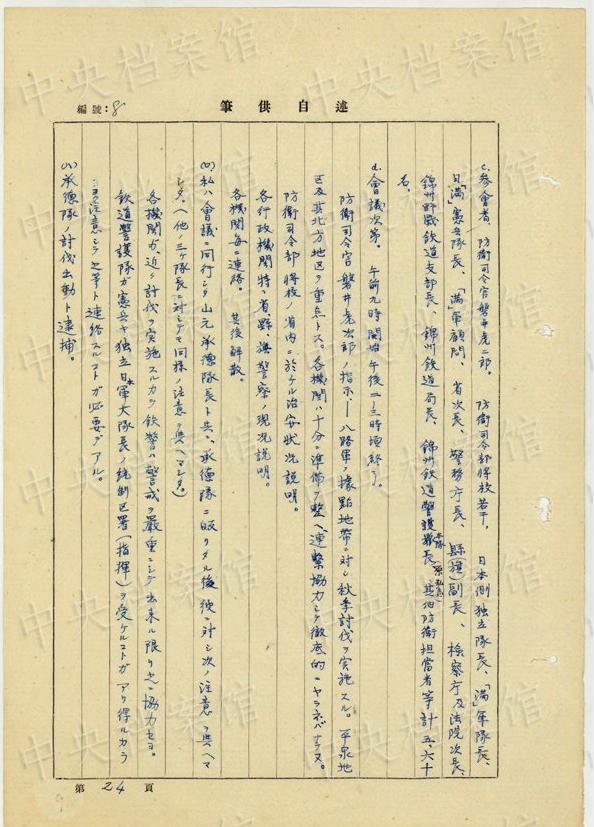 述自供筆
編號:8
c.參會者 防衛司令官盤井虎二郎。防衛司令部將校若干、日本側独立隊長、「満」軍隊長、
日「満」憲兵隊長、「満」軍顧問、省次長、警務庁長、縣(旗)副長、検察庁及法院次長、
錦州鉄道支部長、錦州鉄道局長、錦州鉄道警護本隊長(原弘志)其他防衛担當者等計五、六十
名。
d.會議次第。午前九時開始午後二—三時頃終了。
防衛司令官盤井虎次郎ノ指示、—八路軍ノ據點地帯ニ対シ秋季討伐ヲ実施スル。平泉地
区及其北方地区ヲ重点トス。各機関ハ十分ニ準備ヲ整ヘ連繋協力シテ徹底的ニヤラネバナラヌ。
防衛司令部將校ノ省内ニ於ケル治安狀況説明。
各行政機関特ニ省、縣、旗警察ノ現況説明。
各機関毎ニ連絡。其後解散。
(ロ)私ハ會議ニ同行シタ山元承德隊長ト共ニ、承德隊ニ皈リタル後彼ニ対シ次ノ注意ヲ與ヘマ
シタ。(他ノ三ケ隊長ニ対シテモ同様ノ注意ヲ與ヘマシタ)
各機関ガ、近ク討伐ヲ実施スルカラ鉄警ハ警戒ヲ嚴重ニシテ出来ル限リ之ニ協力セヨ。
鉄道警護隊ガ憲兵ヤ独立日本軍大隊長ノ統制区署(指揮)ヲ受ケルコトガアリ得ルカラ
ヨク注意シテ之等ト連絡スルコトガ必要デアル。
(ハ)承德隊ノ討伐出動ト逮捕。
第24頁
中央档案馆